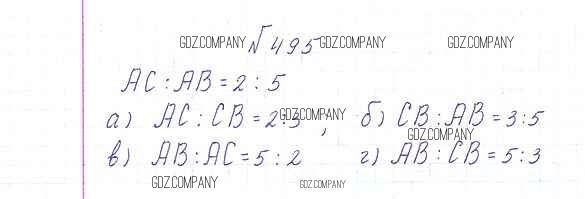 GDZ.COMPANY №495 GDZ.COMPANY GDZ.COMPANY
AC : AB = 2 : 5
а) AC : CB = 2:3, б) CB : AB = 3:5
GDZ.COMPANY GDZ.COMPANY
в) AB : AC = 5 : 2 г) AB : CB = 5:3
GDZ.COMPANY GDZ.COMPANY